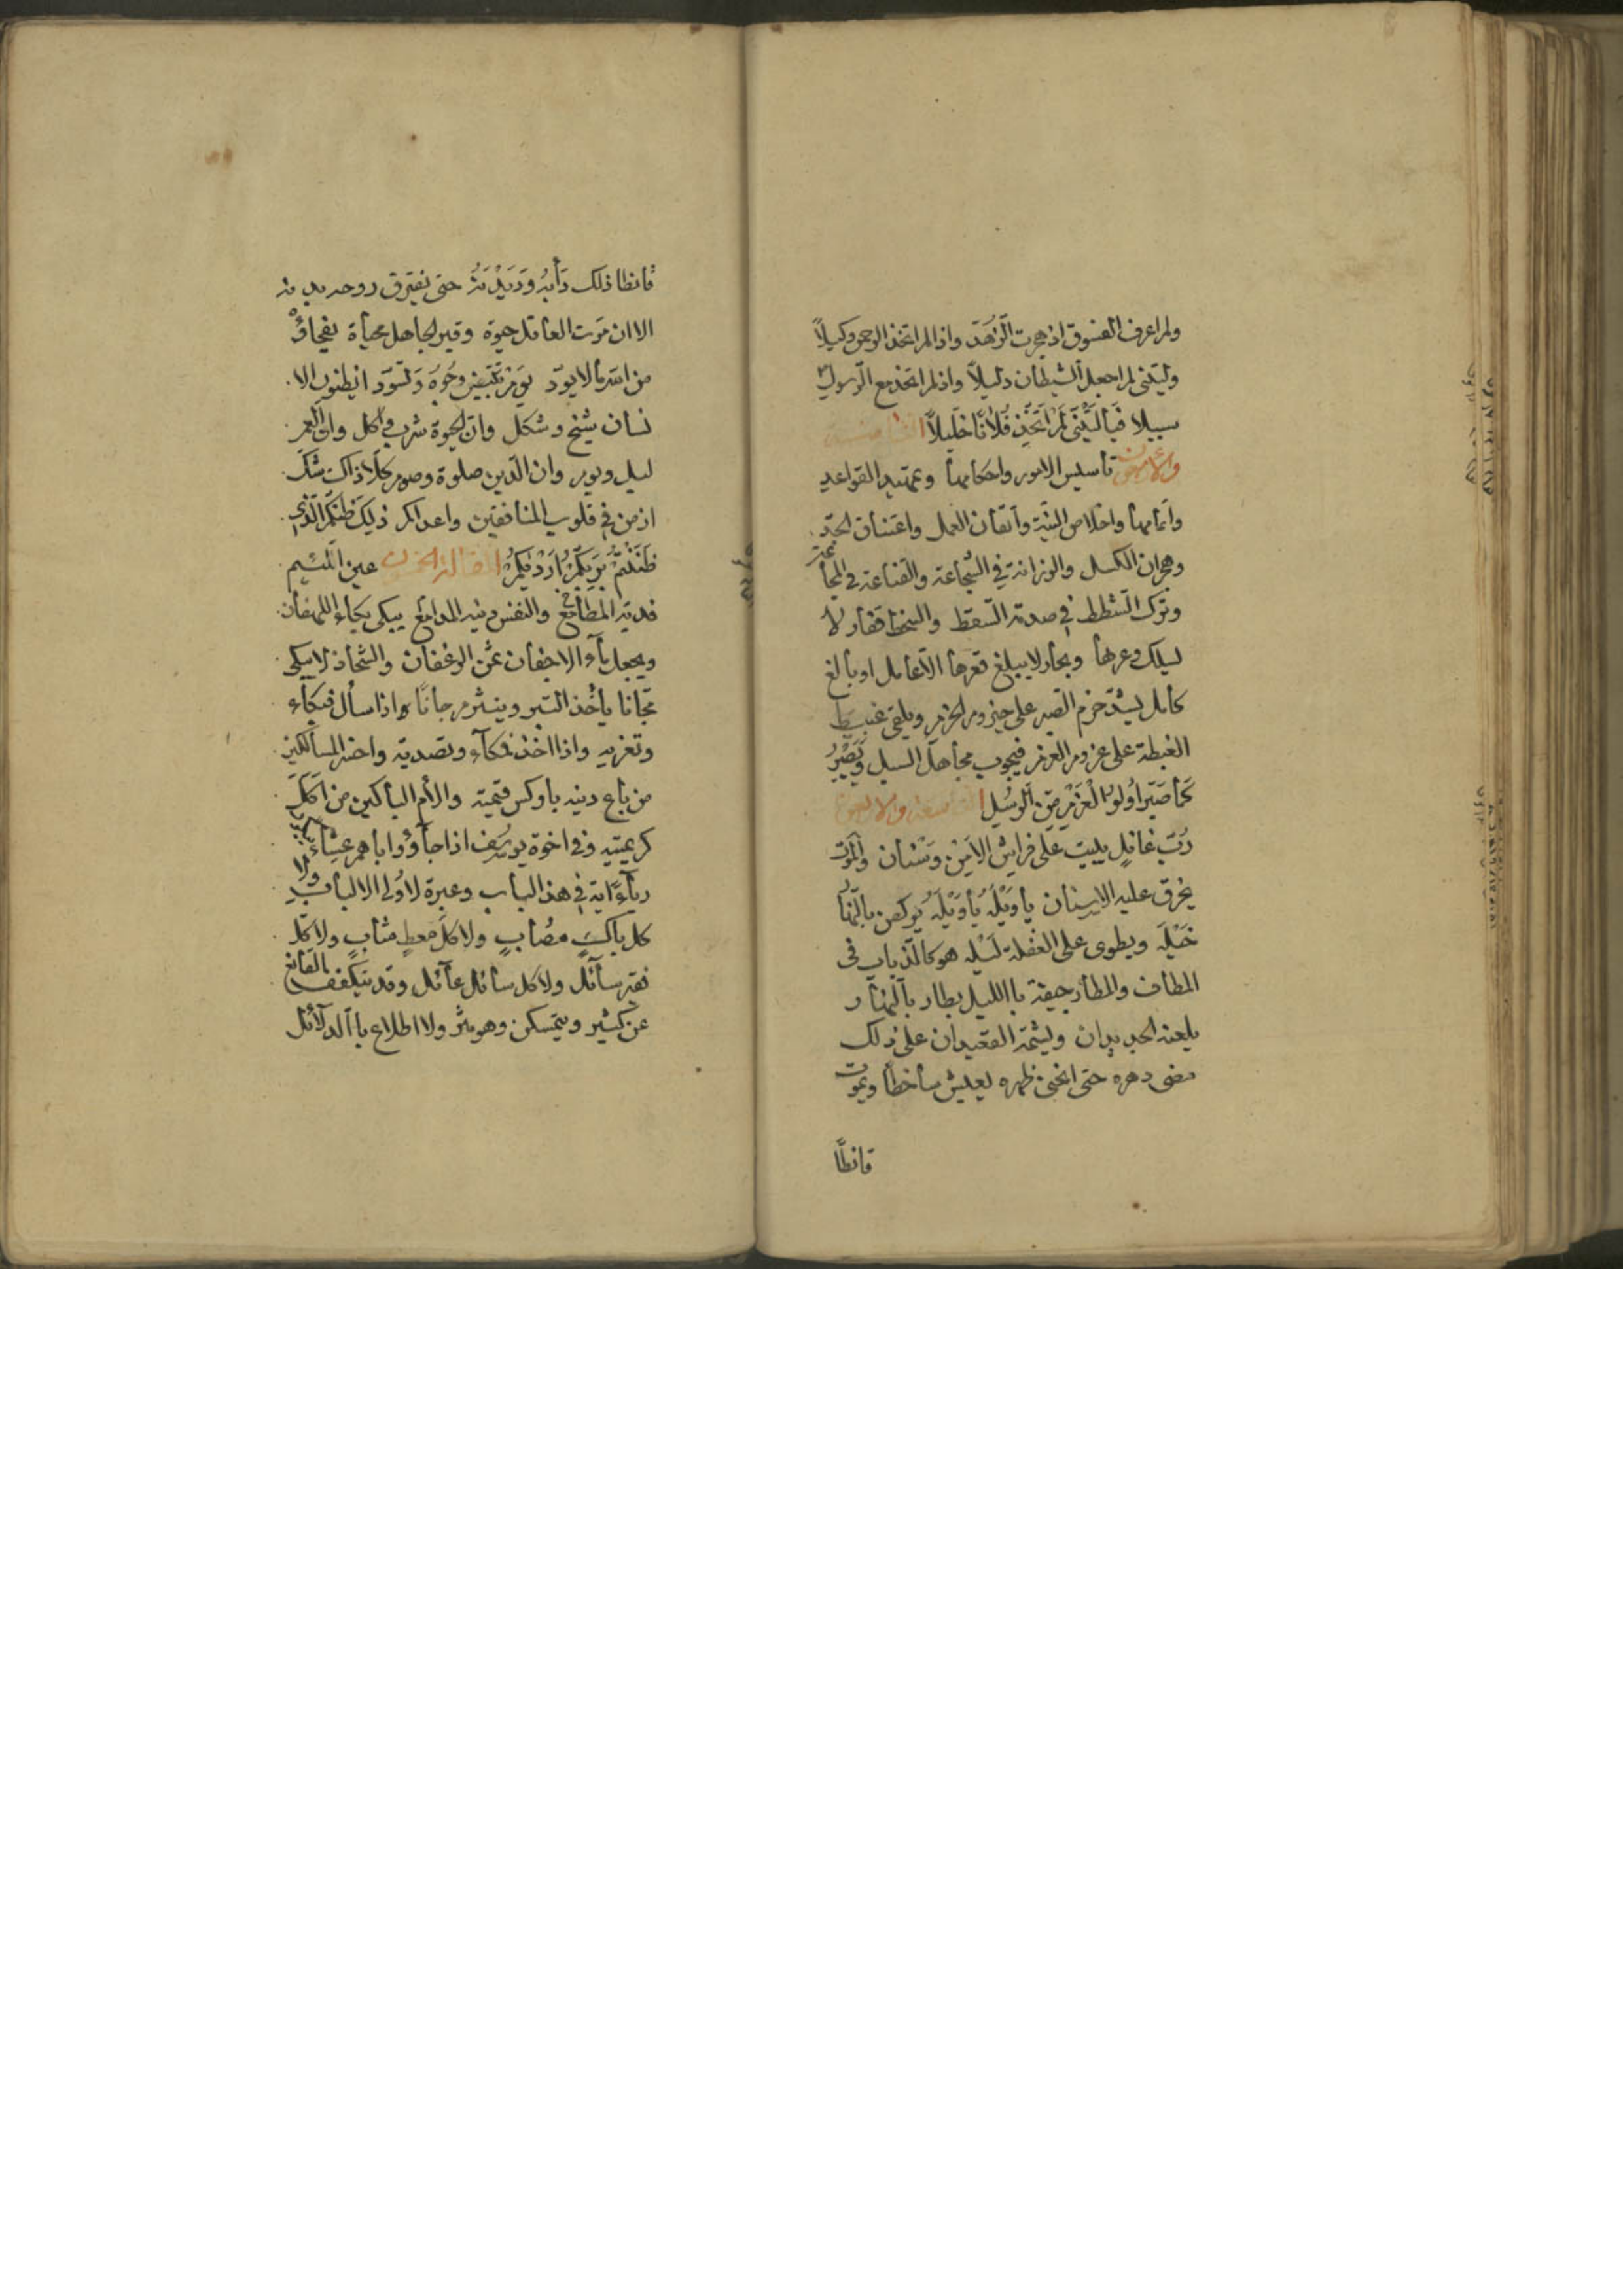 ولم اعرف الفسوق اذ هجرت الزهد واذ لم اتخذ الرحمن وكيلاً
وليتنى لم اجعل الشيطان دليلاً واذ لم اتخذ مع الرسول
سبيلا فيا ليتنى لم اتخذ فلانا خليلاً الثامنة
والاربعون تأسيس الامور واحكامها وتمهيد القواعد
واتمامها واخلاص النية واتقان العمل واعتناق الجد
وهجران الكسل والرزانة في الشجاعة والقناعة في المجاعة
وترك الشطط في صدمة السقط والسخط قفار لا
يسلك وعرها وبحار لا يبلغ قعرها الا عامل او بالغ
كامل يشد حزم الصبر على حيزوم الحزم ويلقى غبيط
الغبطة على عزوم العزم فيجوب مجاهل السبل ويصبر
كما صبر اولوا العزم من الرسل التاسعة والاربعون
رب غافل يبيت على فراش الامن وسنان والموت
يحرق عليه الاسنان يا ويله يا ويله يركض بالنهار
خيله ويطوى على الغفلة ليله هو كالذباب فى
المطاف والمطار جيفة بالليل بطار بالنهار
يلعنه الجديدان ويشتمه القعيدان على ذلك
مضى دهره حتى انحنى ظهره يعيش ساخطا ويموت
قانطا
قانطا ذلك دأبه وديدنه حتى يفترق روحه بدنه
الا ان موت العاقل حيوة وقبر الجاهل محياه
من اشر ما لا يود يوم تبيض وجوه وتسود ايظنون الا
نسان شيخ وشكل وان الحيوة شرب واكل وان العمر
ليل ويوم وان الدين صلوة وصوم كلا ذاك شك
ازمن في قلوب المنافقين واعداكم ذلك ظنكم الذى
ظننتم بربكم ارديكم المقالة الخمسون عين اللئيم
فدية المطامع والنفس دنية المدامع يبكى بكاء اللهفان
ويجعل ماء الاجفان ثمن الرغفان والشحاذ لا يبكى
مجانا يأخذ التبر وينثر مرجانا واذا سأل فبكاء
وتعزيه واذا اخذ فمكاء وتصدية واخسر المساكين
من باع دينه باوكس قيمته والأم الباكين من اكل
كريمتيه وفي اخوة يوسف اذ جاؤوا اباهم عشاء يبكون
رياء اية في هذا الباب وعبرة لاولى الالباب ولا
كل باك مصاب ولا كل معط مثاب ولا كل
فقير سائل ولا كل سائل عائل وقد يتكفف القانع
عن كثير ويتمسكن وهو مثر ولا اطلاع بالدلائل